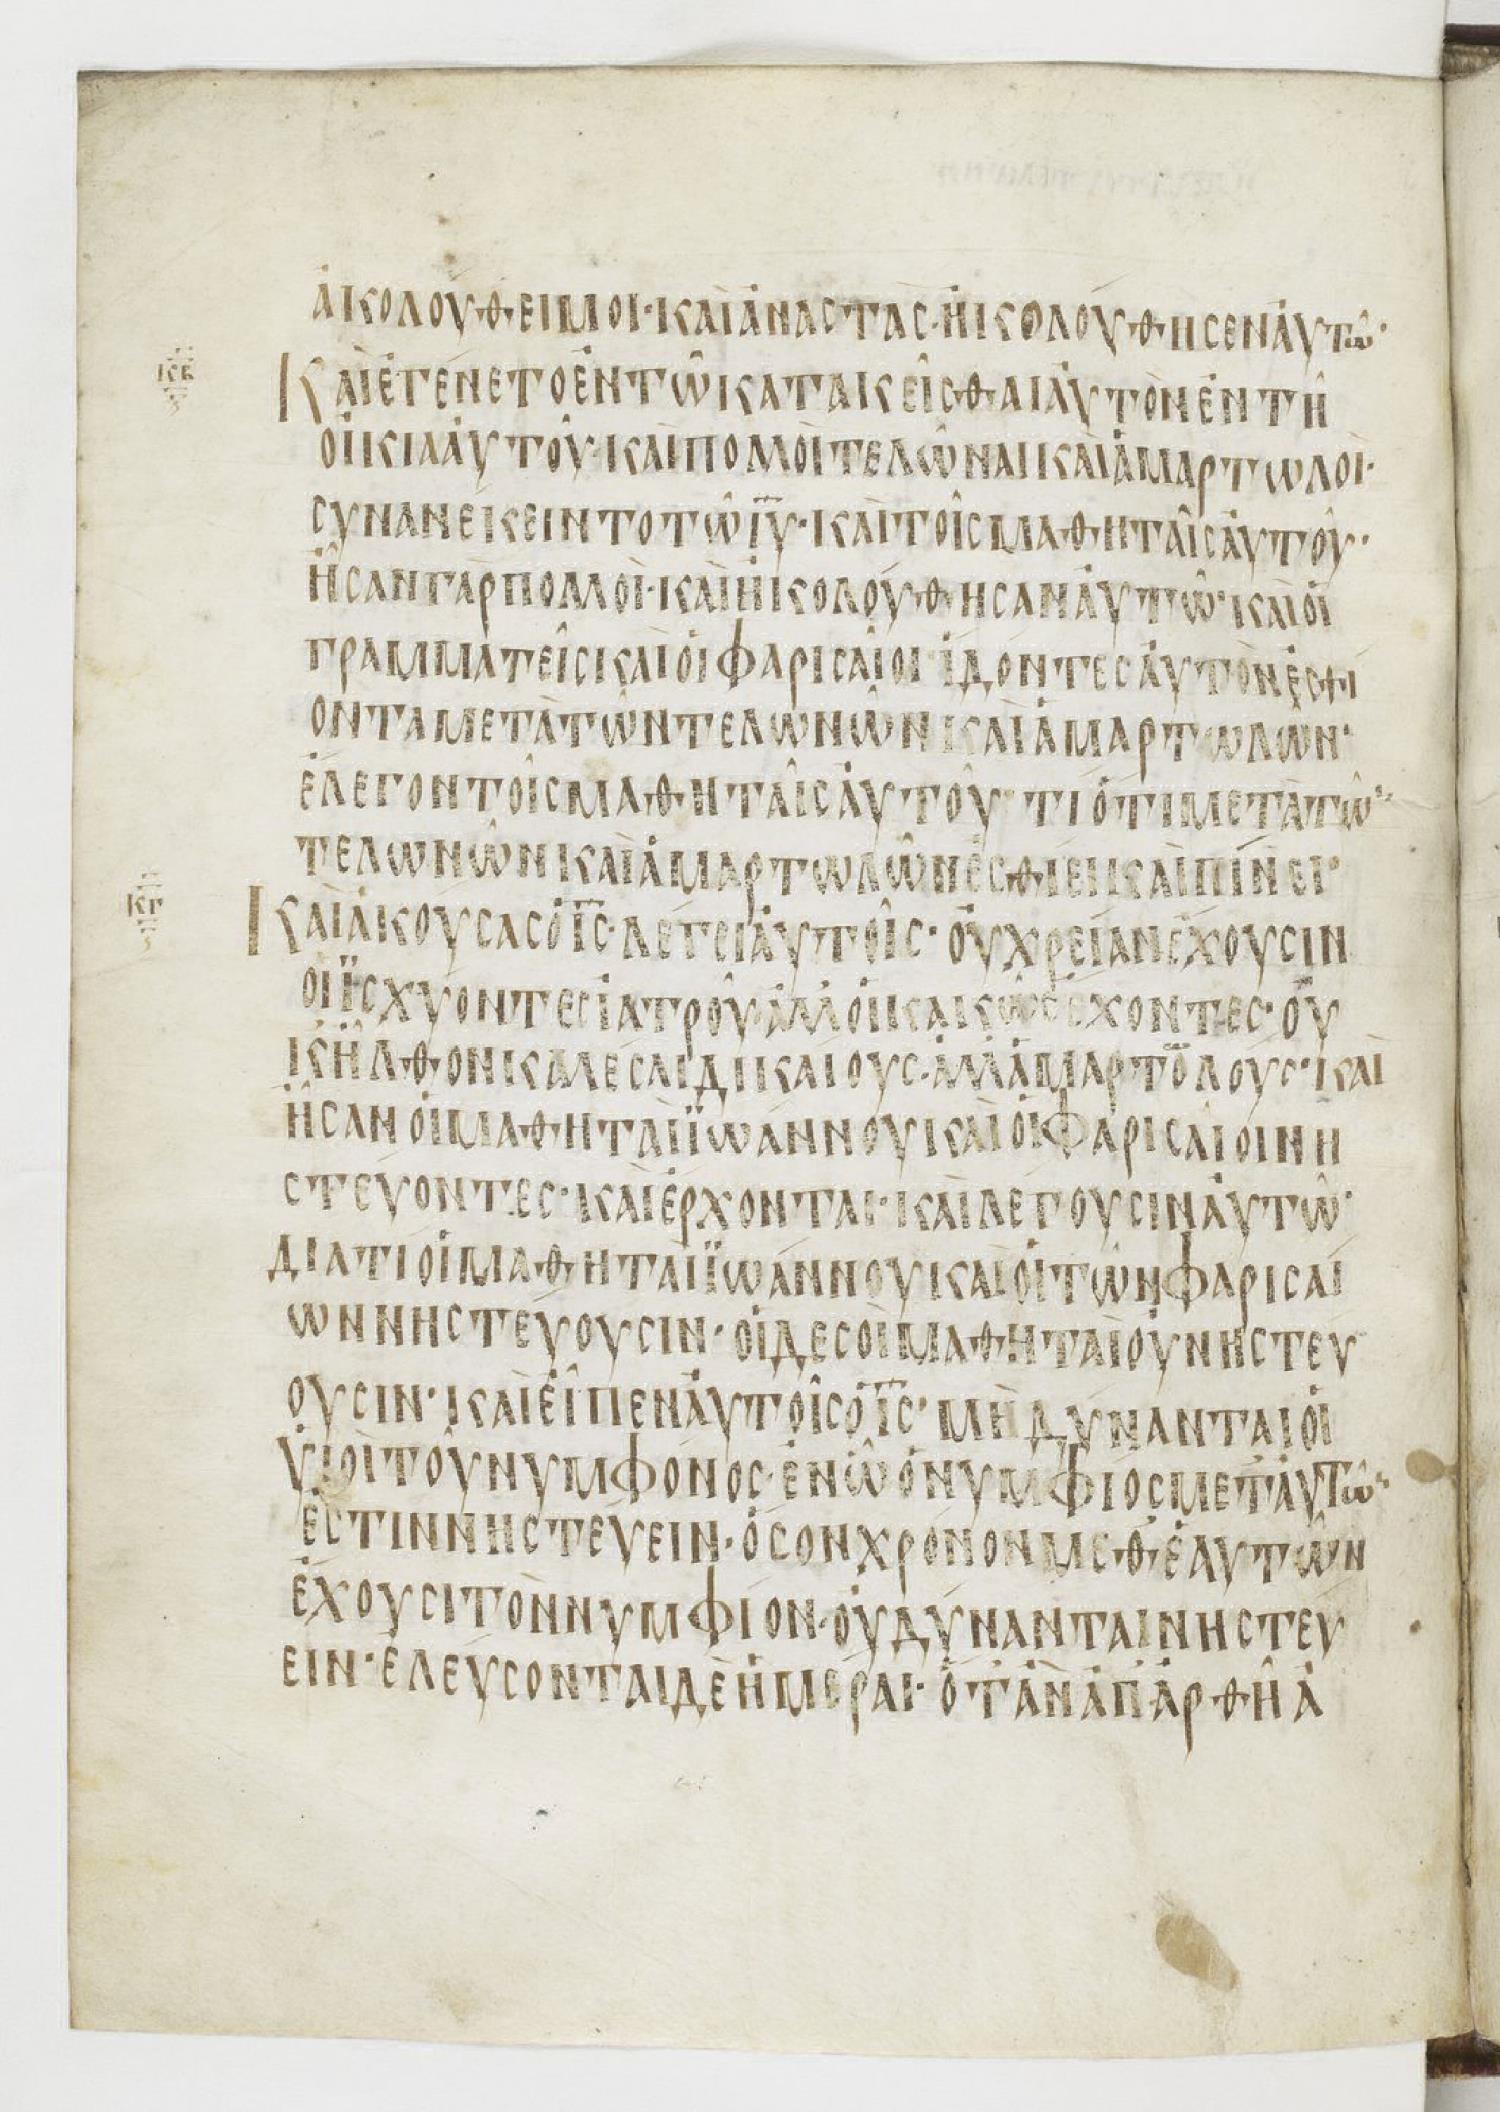 ἀκολούθει μοι· καὶ ἀναστὰς· ἠκολούθησεν ἀυτῶ·
κβ
Καὶ ἐγένετο ἐν τῶ κατακεῖσθαι ἀυτὸν ἐν τῆ
οἰκία ἀυτοῦ· καὶ πολλοὶ τελῶναι καὶ ἁμαρτωλοὶ·
συνανέκειντο τῶ ῑῡ· καὶ τοῖς μαθηταῖς ἀυτοῦ·
ἦσαν γὰρ πολλοὶ· καὶ ἠκολούθησαν ἀυτῶ· καὶ οἱ
γραμματεῖς καὶ οἱ φαρισαῖοι· ἰδόντες ἀυτὸν ἐσθί
οντα μετὰ τῶν τελωνῶν καὶ ἁμαρτωλῶν·
ἔλεγον τοῖς μαθηταῖς ἀυτοῦ· τί ὅτι μετὰ τῶ
τελωνῶν καὶ ἁμαρτωλῶν ἐσθίει καὶ πίνει·
κγ
Καὶ ἀκούσας ὁ ῑς̄· λέγει ἀυτοῖς· ὀυ χρείαν ἔχουσιν
οἱ ϊσχύοντες ἰατροῦ· ἀλλ οἱ κακῶς ἔχοντες· ὀυ
κ ἦλθον καλέσαι δικαίους· ἀλλ ἁμαρτολούς· καὶ
ἦσαν οἱ μαθηταὶ ϊωάννου καὶ οἱ φαρισαῖοι νη
στεύοντες· καὶ ἔρχονται· καὶ λέγουσιν ἀυτῶ·
διατί οἱ μαθηταὶ ϊωάννου καὶ οἱ τῶν φαρισαί
ων νηστεύουσιν· οἱ δε σοὶ μαθηταὶ ὀυ νηστεύ
ουσιν· καὶ ἐῖπεν ἀυτοῖς ὁ ῑς̄· μὴ δύνανται οἱ
ὑιοὶ τοῦ νυμφόνος· ἐν ῶ ὁ νυμφίος μετ ἀυτῶ
ἐστιν νηστεύειν· ὅσον χρόνον μεθ ἑαυτῶν
ἔχουσι τὸν νυμφίον· ὀυ δύνανται νηστεύ
ειν· ἐλεύσονται δὲ ἡμέραι· ὅταν ἀπαρθῆ ἀ